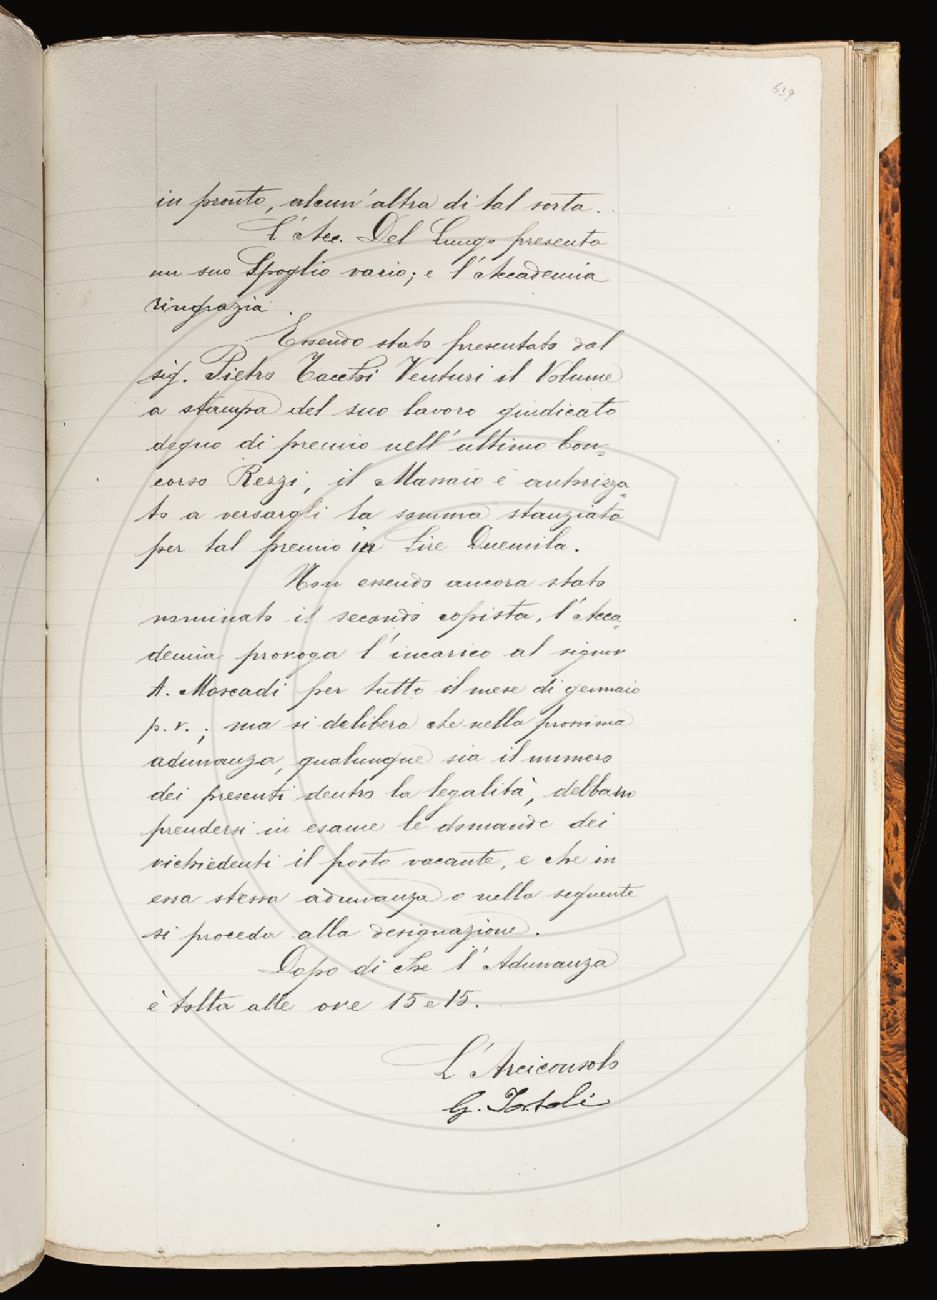 639
in pronto, alcun'altra di tal sorta.
L'Acc. Del Lungo presenta
un suo Spoglio vario; e l'Accademia
ringrazia.
Essendo stato presentato dal
sig. Pietro Tacchi Venturi il Volume
a stampa del suo lavoro giudicato
degno di premio nell'ultimo Con=
corso Rezzi, il Massaio è autorizza=
to a versargli la somma stanziata
per tal premio in Lire Duemila.
Non essendo ancora stato
nominato il secondo copista, l'Acca=
demia proroga l'incarico al signor
A. Moscadi per tutto il mese di gennaio
p. v.; ma si delibera che nella prossima
adunanza, qualunque sia il numero
dei presenti dentro la legalità, debbano
prendersi in esame le domande dei
richiedenti il posto vacante, e che in
essa stessa adunanza o nella seguente
si proceda alla designazione.
Dopo di che l'Adunanza
è tolta alle ore 15 e 15.
L'Arciconsolo
G. Tortoli